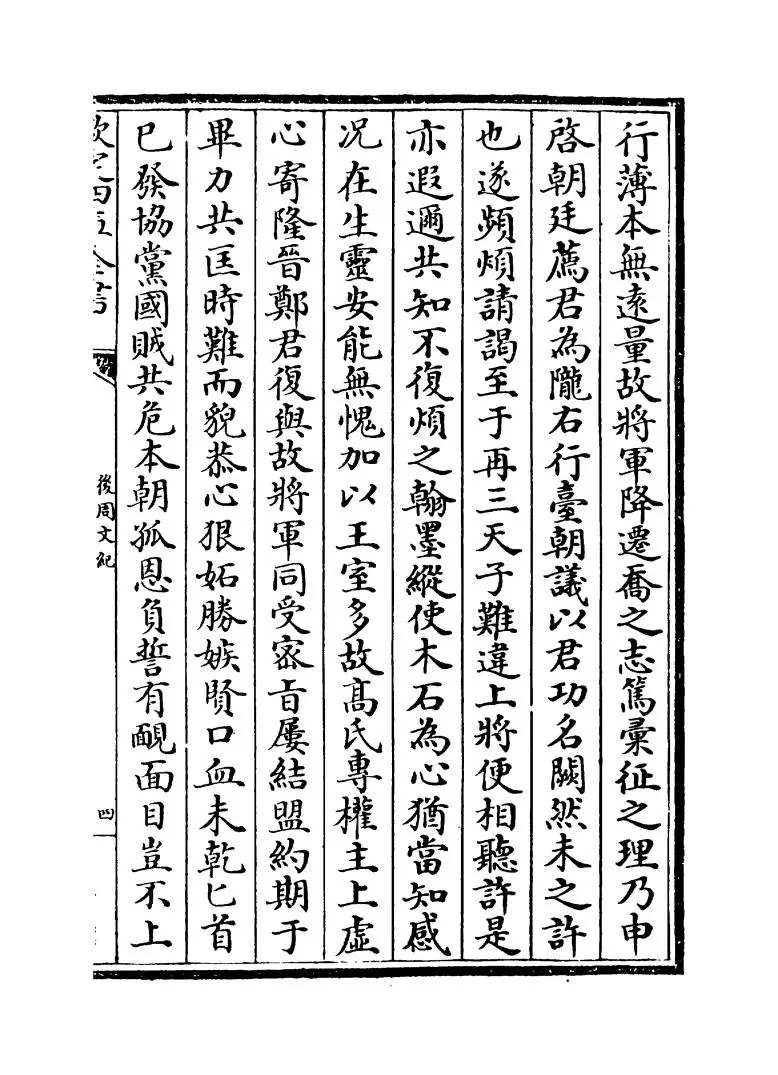 行薄本無逺量故將軍降遷喬之志篤彚征之理乃申
啓朝廷薦君為隴右行臺朝議以君功名闕然未之許
也遂頻煩請謁至于再三天子難違上將便相聽許是
亦遐邇共知不復煩之翰墨縱使木石為心猶當知感
况在生靈安能無愧加以王室多故髙氏專權主上虛
心寄隆晉鄭君復與故將軍同受宻旨屢結盟約期于
畢力共匡時難而貌恭心狠妬勝嫉賢口血未乾匕首
已發協黨國賊共危本朝孤恩負誓有靦面目豈不上
欽定四庫全書
後周文紀
四